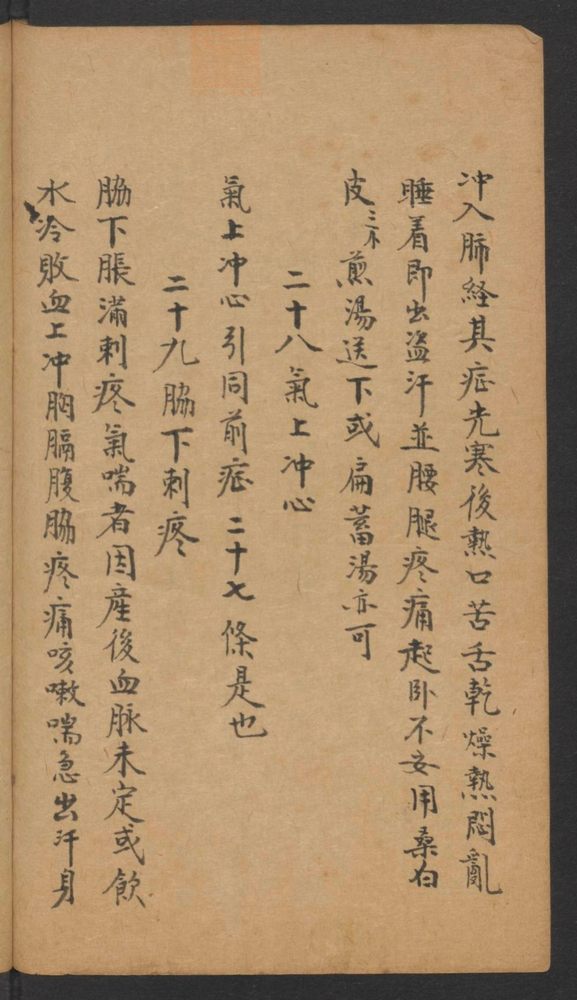 冲入肺経其症先寒後熱口苦舌乾燥熱悶亂
睡着即出盗汗並腰腿疼痛起卧不安用桑白
皮三木煎湯送下或扁蓄湯亦可
二十八氣上冲心
氣上冲心引同前症二十七條是也
二十九脇下刺疼
脇下脹滿刺疼氣喘者因産後血脉未定或飲
水冷敗血上冲胸膈腹脇疼痛咳嗽喘急出汗身